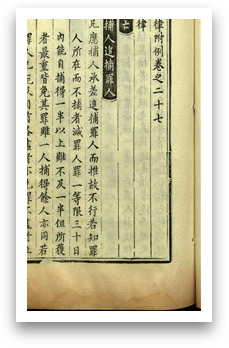 律附例卷之二十七
律
亡
捕人追捕罪人
凡應捕人承差追捕罪人而推故不行若知罪
人所在而不捕者減罪人罪一等限三十日
內能自捕得一半以上雖不及一半但所獲
者最重皆免其罪雖一人捕得餘人亦同若